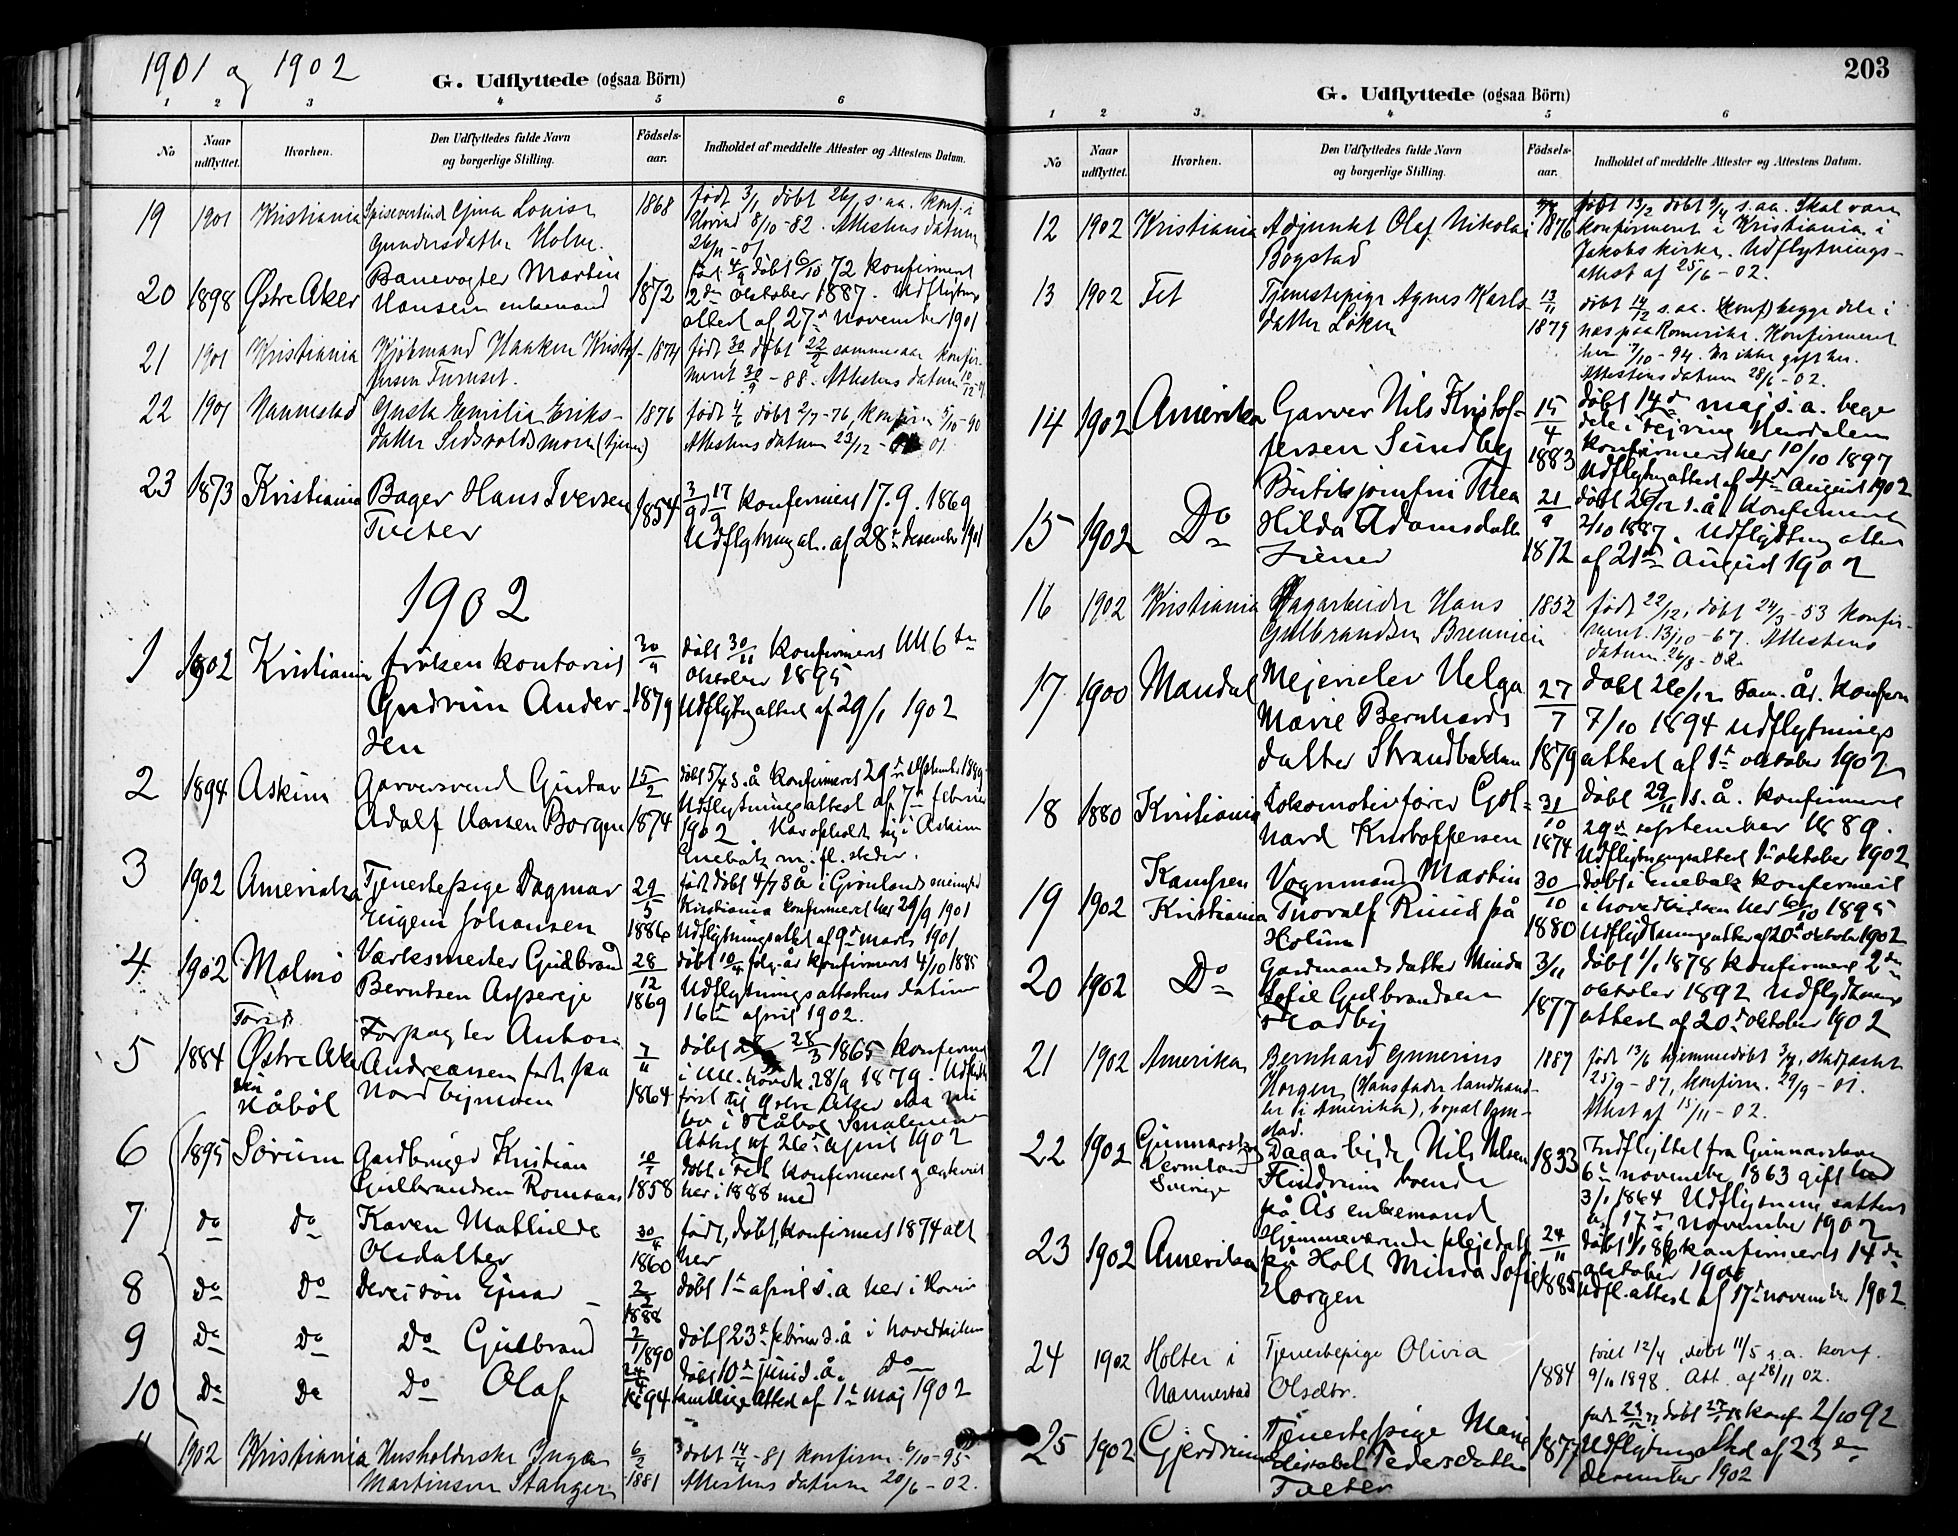 1901 og 1902
G. Udflyttede (ogsaa Börn)
1 2 3 4 5 6
No
Naar udflyttet.
Hvorhen.
Den Udflyttedes fulde Navn
og borgerlige Stilling.
Födsels-
aar.
Indholdet af meddelte Attester og Attestens Datum.
19 1901 Kristiania Spisevertinde Gina Lovise 1868 født 3/1 døbt 26/1 s.aa. konf. i
Gundersdatter Holm. 8/10-82. Attestens datum
26/11-01
20 1898 Østre Aker Banevogter Martin 1872 født 4/9 døbt 6/10 72 konfirmert
Hansen enkemand 2den oktober 1887. Udflytnings
attest af 27de November 1901
21 1901 Kristiania Kjøbmand Haaken Kristof- 1874 født 30/1 døbt 22/2 sammeaar konfir-
fersen Furuset. meret 30/9-88. Attestens datum 10/12-01
22 1901 Nannestad Gusta Emilia Eriks- 1876 født 4/6 døbt 2/7-76, konfirm 5/10-90
datter (tjener) Attestens datum 23/12-01.
23 1873 Kristiania Bager Hans Iversen 1854 3/9 17/9 konfirmert 17.9.1869
Tveter Udflytning at. af 28de desember 1901
1902
1 1902 Kristiania frøken kontorist 30/9 døbt 30/11 konfirmert Ull 6te
Gudrun Ander- 1879 oktober 1895
sen Udflytn attest af 29/1 1902
2 1894 Askim Garversvend Gustav 15/2 døbt 5/4 s.å konfirmeret 29de september 1889
Adolf Hansen Borgen 1874 Udflytningsattest af 7de februar
1902. Har opholdt sig i Askim
Enebak m. fl. steder.
3 1902 Amerika Tjenestepige Dagmar 29/5 født døbt 4/7 8å i Grønlands menighed
Eugenie Johansen 1886 Kristiania konfirmeret her 29/9 1901
Udflytningsattest af 9de marts 1901
4 1902 Malmö Værksmester Gulbrand 28/12 døbt 10/4 følg. år konfirmert 4/10 1885
Berntsen Aspereje 1869 Udflytningsattestens datum
16de april 1902.
5 1884 Først Østre Aker Forpagter Anton 7/11 døbt 28/3 1865 konfirme
Andreassen født paa 1864 i Ull. hovedk. 28/9 1879. Udflytt
Nordbymoen først til Østre Aker saa nu
den Håbøl bor i Håbøl Smålenene
Attest af 26de april 1902
6 1895 Sørum Gardbruger Kristian 10/1 døbt i Fet konfirmeret og ægteviet
Gulbrandsen Romsaas 1858 her i 1888 med
7 Do Do Karen Mathilde 30/4 født, døbt, konfirmert 1874 alt
Olsdatter 1860 her
8 Do Do Deres søn Ejnar 2/2 1888 døbt 1ste april s.a her i hoved
9 Do Do Do Gulbrand 2/1 1890 døbt 23de februar s.å i hovedkirken
10 Do Do Do Olaf 24/4 1894 døbt 10de juni s.å. Do
samtlige attest af 1ste maj 1902
1902 Kristiania Husholderske Inga 6/2 døbt 14/4-81 konfirm. 6/10-95
Martinsen Stanger 1881 Attestens datum 20/6-02.
203
G. Udflyttede (ogsaa Börn)
1 2 3 4 5 6
No
Naar udflyttet.
Hvorhen.
Den Udflyttedes fulde Navn
og borgerlige Stilling.
Födsels-
aar.
Indholdet af meddelte Attester og Attestens Datum.
12 1902 Kristiania Adjunkt Olaf Nikolai 1876 født 13/2 døbt 9/4 s.aa. Skal være
Bogstad konfirmeret i Kristiania i
Jakobs kirke. Udflytnings-
attest af 25/6-02.
13 1902 Fet Tjenestepige Agnes Karls- 13/11 døbt 14/12 s.aa. (konf) begge dele i
datter Løken 1879 Nes paa Romerike. Konfirmeret
her 7/10-94. Er ikke gift her.
Attestens datum 28/6-02.
14 1902 Amerika Garver Nils Kristof- 15/4 døbt 14de maj s.a. bege
fersen Sundby 1883 dele i
konfirmert her 10/10 1897
Udflytn attest af 4de August 1902
15 1902 Do Butiksjomfru Thea 21/9 døbt 26/12 s.å. Konfirmert
Hilda Adamsdatte 1872 2/10 1887. Udflytning attest
af 21de August 1902
16 1902 Kristiania Dagarbeider Hans 1852 født 22/12, døbt 24/3-53 konfir-
Gulbrandsen mert. 13/10-67. Attestens
datum 26/8-02.
17 1900 Mandal Mejerielev Helga 27/7 døbt 26/12 sam. år. konfirm
Marie Bernhards 1879 7/10 1894 udflytnings
datter Strandbakken attest af 1ste oktober 1902
18 1880 Kristiania Lokomotivfører Got- 31/10 døbt 29/11 s.å. konfirmeret
hard Kristoffersen 1874 29de september 1889.
Udflytningsattest 1ste oktober 1902
19 1902 Kampen Kristiania Vognmand Martin 30/10 døbt i Enebak konfirmert
Thoralf Ruud på 1880 i hovedkirken her 6/10 1895
Holum Udflydtning attest af 20de oktober 1902
20 1902 Do Gardmandsdatter Minda 3/11 døbt 1/1 1878 konfirmert 2den
Sofie Gulbrandsen 1877 oktober 1892 Udflydtnings
Stadby attest af 20de oktober 1902
21 1902 Amerika Bernhard Gunerius 1887 født 13/6 hjemmedøbt 3/7, stadfæstet
Horgen (Hans fader landhand- 25/9-87, konfirm. 29/9-01.
ler i Amerika), bopæl Ogn- Attest af 15/11-02.
stad.
22 1902 Gunnarskog Vermland Sverige Dagarbejder Nils Nilsen 1833 Indflyttet fra Gunnarskog
Flindrum boende 6te november 1863 gift her
på Ås enkemand 3/1 1864 Udflytningsattest
af 17de november 1902
23 1902 Amerika Hjemmeværende plejedatt 24/11 døbt 1/1 86 konfirmeret 14de
på Holt Minda Sofie 1885 oktober 1900
Horgen Udfl. attest af 17de november 1902.
24 1902 Holter i Tjenestepige Olivia 1884 født 12/4, døbt 11/5 s.a. konf.
Nannestad Olsdtr. 9/10 1898. Att. af 28/11 02.
25 1902 Gjerdrum Tjenestepige Marie 1877 født døbt konf 2/10 92
Elisabet Pedersdatter Udflytning Attest af 23de
Tveter desember 1902